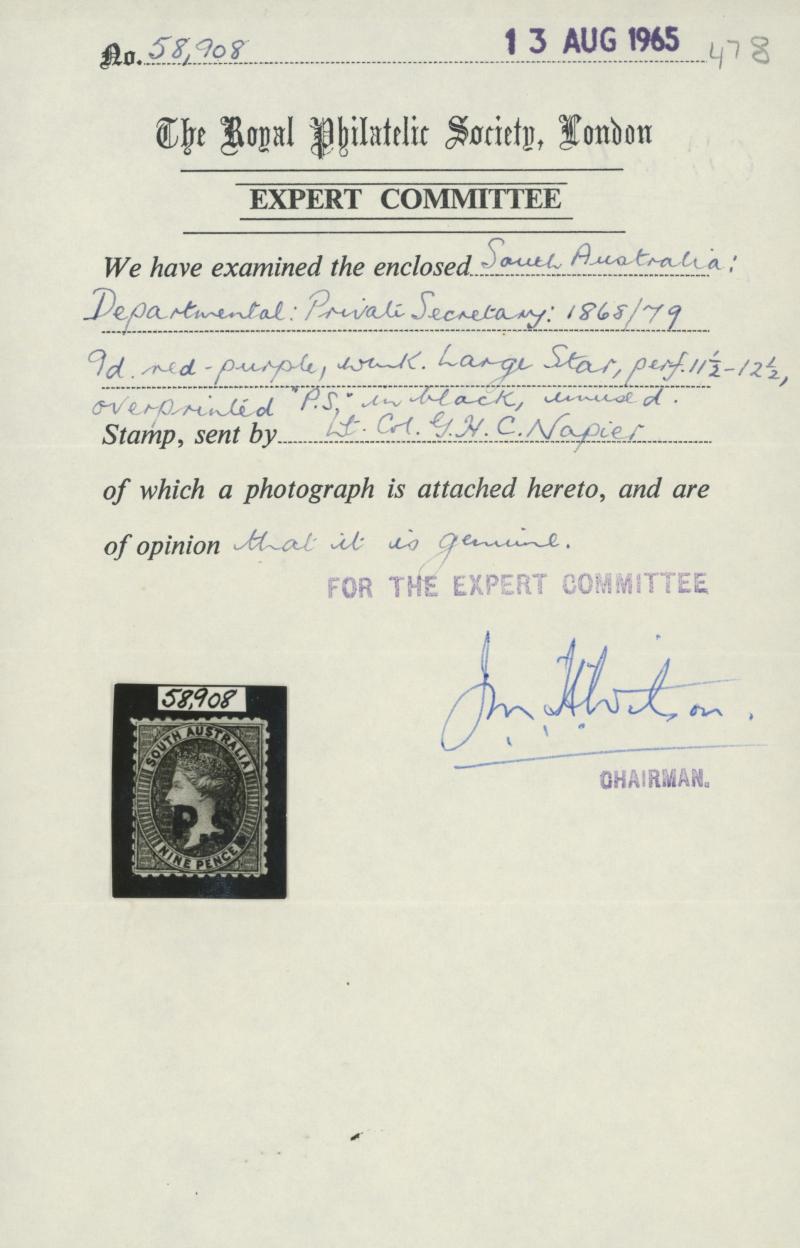 No. 58,908 13 AUG 1965 478
The Royal Philatelic Society, London
EXPERT COMMITTEE
We have examined the enclosed South Australia:
Departmental: Private Secretary: 1868/79
9d. red-purple, wmk. Large Star, perf. 11½-12½,
overprinted "P.S." in black, unused.
Stamp, sent by Lt. Col. G.H.C. Napier
of which a photograph is attached hereto, and are
of opinion that it is genuine.
FOR THE EXPERT COMMITTEE
Jn. H Wilson.
CHAIRMAN.
58,908
SOUTH AUSTRALIA
P.S.
NINE PENCE